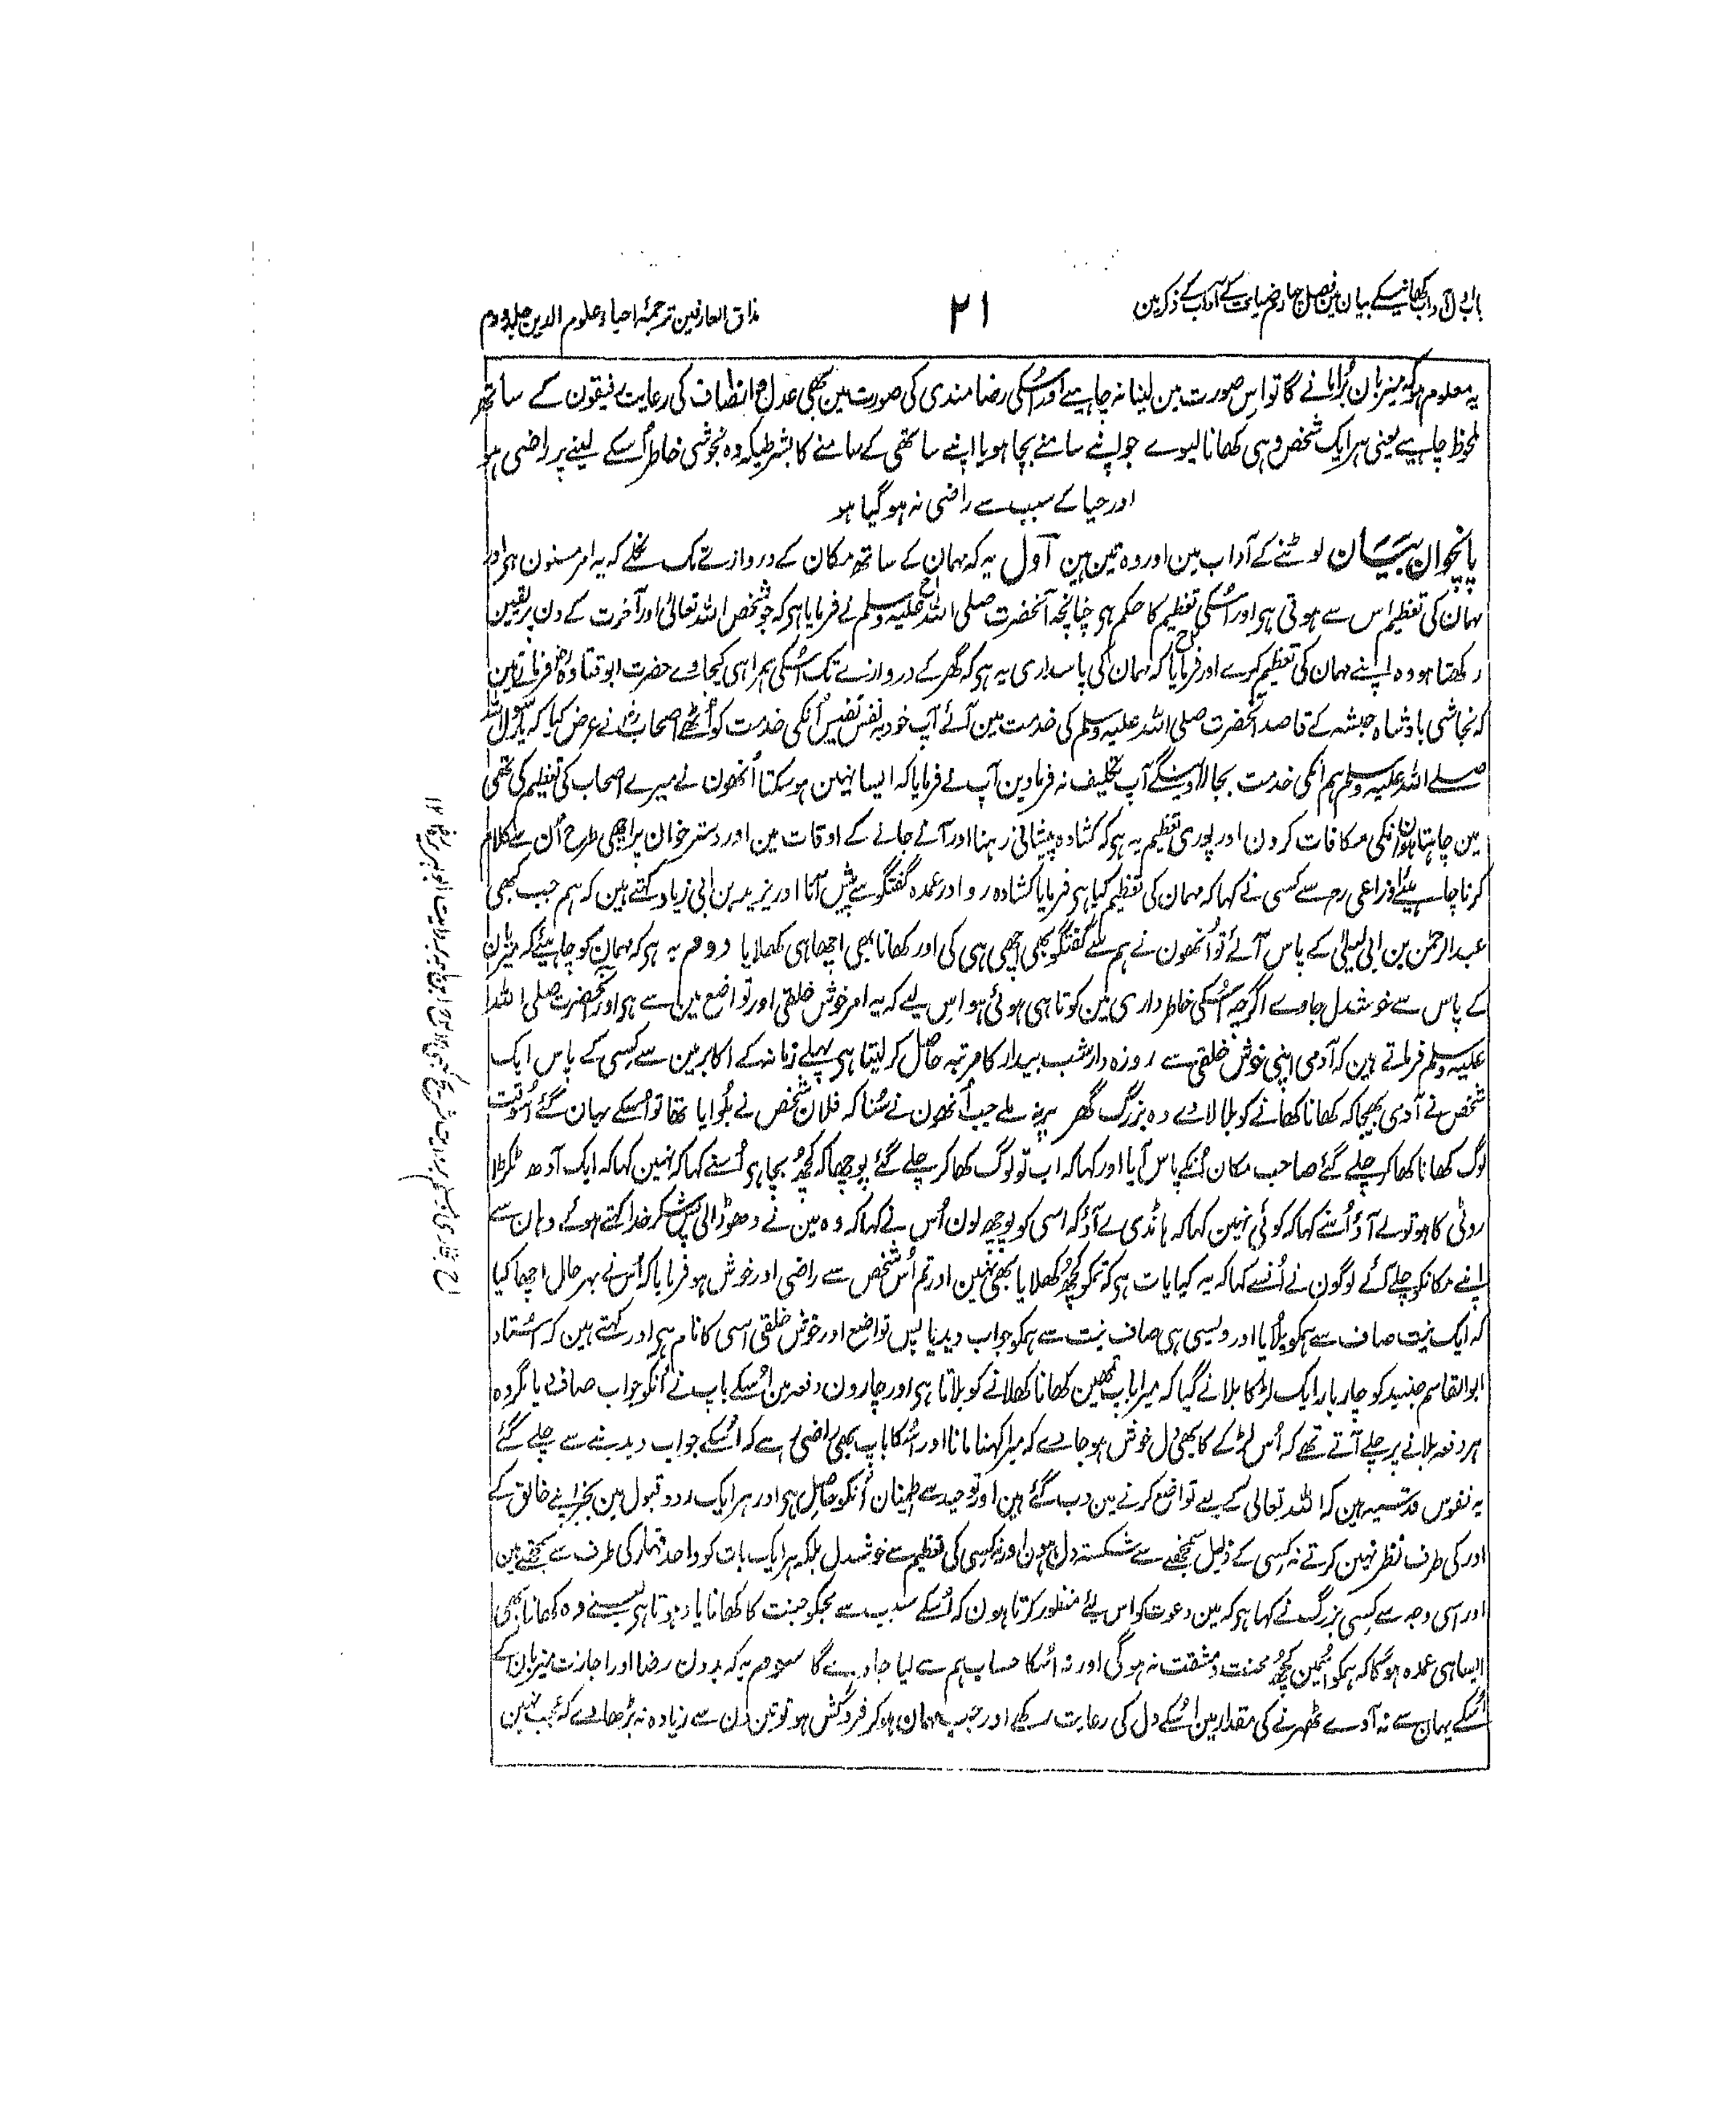 باب اول آداب کھانیکے بیان مین فصل چہارم ضیافت کے آداب کے ذکر مین
۲۱
مذاق العارفین ترجمۂ احیاء علوم الدین جلد دوم
یہ معلوم ہو کہ میزبان بُرا مانے گا تو اس صورت مین لینا نہ چاہیے اور اُسکی رضامندی کی صورت مین بھی عدل و انصاف کی رعایت رفیقون کے ساتھ
ملحوظ چاہیے یعنی ہر ایک شخص وہی کھانا لیوے جو اپنے سامنے بچا ہو یا اپنے ساتھی کے سامنے کا بشرطیکہ وہ بخوشی خاطر اُسکے لینے پر راضی ہو
اور حیا کے سبب سے راضی نہ ہو گیا ہو
پانچوان بیان لوٹنے کے آداب مین اور وہ تین ہین اول یہ کہ مہمان کے ساتھ مکان کے دروازے تک نکلے کہ یہ امر مسنون ہی اور
مہمان کی تعظیم اس سے ہوتی ہی اور اُسکی تعظیم کا حکم ہی چنانچہ آنحضرت صلی اللہ علیہ وسلم نے فرمایا ہی کہ جو شخص اللہ تعالیٰ اور آخرت کے دن پر یقین
رکھتا ہو وہ اپنے مہمان کی تعظیم کرے اور فرمایا کہ مہمان کی پاسداری یہ ہی کہ گھر کے دروازے تک اُسکی ہمراہی کیجاوے حضرت ابو قتادہ رض فرماتے ہین
کہ نجاشی بادشاہ حبشہ کے قاصد آنحضرت صلی اللہ علیہ وسلم کی خدمت مین آئے آپ خود بہ نفس نفیس اُنکی خدمت کو اُٹھے اصحاب رض نے عرض کیا کہ یا رسول اللہ
صلے اللہ علیہ وسلم ہم اُنکی خدمت بجا لاوینگے آپ تکلیف نہ فرماوین آپ نے فرمایا کہ ایسا نہین ہو سکتا اُنھون نے میرے اصحاب کی تعظیم کی تھی
مین چاہتا ہون اُنکی مکافات کرون اور پوری تعظیم یہ ہی کہ کشادہ پیشانی رہنا اور آنے جانے کے اوقات مین اور دسترخوان پر اچھی طرح اُن سے کلام
کرنا چاہیے اوزاعی رح سے کسی نے کہا کہ مہمان کی تعظیم کیا ہی فرمایا کشادہ رو اور عمدہ گفتگو سے پیش آنا اور یزید بن ابی زیاد کہتے ہین کہ ہم جب کبھی
عبدالرحمٰن بن ابی لیلیٰ کے پاس آئے تو اُنھون نے ہم سے گفتگو بھی اچھی ہی کی اور کھانا بھی اچھا ہی کھلایا دوم یہ ہی کہ مہمان کو چاہیئے کہ میزبان
کے پاس سے خوشدل جاوے اگرچہ اُسکی خاطرداری مین کوتاہی ہوئی ہو اس لیے کہ یہ امر خوش خلقی اور تواضع مین سے ہی اور آنحضرت صلی اللہ
علیہ وسلم فرماتے ہین کہ آدمی اپنی خوش خلقی سے روزہ دار شب بیدار کا مرتبہ حاصل کر لیتا ہی پہلے زمانہ کے اکابر مین سے کسی کے پاس ایک
شخص نے آدمی بھیجا کہ کھانا کھانے کو بلا لاوے وہ بزرگ گھر پر نہ ملے جب اُنھون نے سُنا کہ فلان شخص نے بُلوایا تھا تو اُسکے یہان گئے اُسوقت
لوگ کھانا کھا کر چلے گئے صاحب مکان اُنکے پاس آیا اور کہا کہ اب تو لوگ کھا کر چلے گئے پوچھا کہ کچھ بچا ہی اُسنے کہا کہ نہین کہا کہ ایک آدھ ٹکڑا
روٹی کا ہو تو لے آؤ اُسنے کہا کہ کوئی نہین کہا کہ ہانڈی لے آؤ کہ اسی کو پوچھ لون اُس نے کہا کہ وہ مین نے دھو ڈالی پس شکر خدا کہتے ہوئے وہان سے
اپنے مکان کو چلے گئے لوگون نے اُنسے کہا کہ یہ کیا بات ہی کہ تمکو کچھ کھلایا بھی نہین اور تم اُس شخص سے راضی اور خوش ہو فرمایا کہ اُس نے بہرحال اچھا کیا
کہ ایک نیت صاف سے ہمکو بُلایا اور ویسی ہی صاف نیت سے ہمکو جواب دیدیا پس تواضع اور خوش خلقی اسی کا نام ہی اور کہتے ہین کہ اُستاد
ابوالقاسم جنید کو چار بار ایک لڑکا بلانے گیا کہ میرا باپ تمھین کھانا کھلانے کو بلاتا ہی اور چارون دفعہ مین اُسکے باپ نے اُنکو جواب صاف دیا مگر وہ
ہر دفعہ بلانے پر چلے آتے تھے کہ اُس لڑکے کا بھی دل خوش ہو جاوے کہ میرا کہنا مانا اور اُسکا باپ بھی راضی رہے کہ اُسکے جواب دیدینے سے چلے گئے
یہ نفوس قدسیہ ہین کہ اللہ تعالی کے لیے تواضع کرنے مین دب گئے ہین اور توحید سے اطمینان اُنکو حاصل ہی اور ہر ایک رد و قبول مین بجز اپنے خالق کے
اور کی طرف نظر نہین کرتے نہ کسی کے ذلیل سمجھنے سے شکستہ دل ہون اور نہ کسی کی تعظیم سے خوشدل بلکہ ہر ایک بات کو واحد قہار کی طرف سے سمجھتے ہین
اور اسی وجہ سے کسی بزرگ نے کہا ہی کہ مین دعوت کو اس لیے منظور کرتا ہون کہ اُسکے سبب سے مجکو جنت کا کھانا یاد ہوتا ہی یعنے وہ کھانا بھی
ایسا ہی عمدہ ہوگا کہ ہمکو اُسمین کچھ محنت و مشقت نہ ہوگی اور نہ اُسکا حساب ہم سے لیا جاوے گا سوم یہ کہ بدون رضا اور اجازت میزبان کے
اُسکے یہان سے نہ آوے ٹھہرنے کی مقدار مین اُسکے دل کی رعایت رکھے اور جب مہمان ہو کر فروکش ہو تو تین دن سے زیادہ نہ بڑھاوے کہ عجب نہین